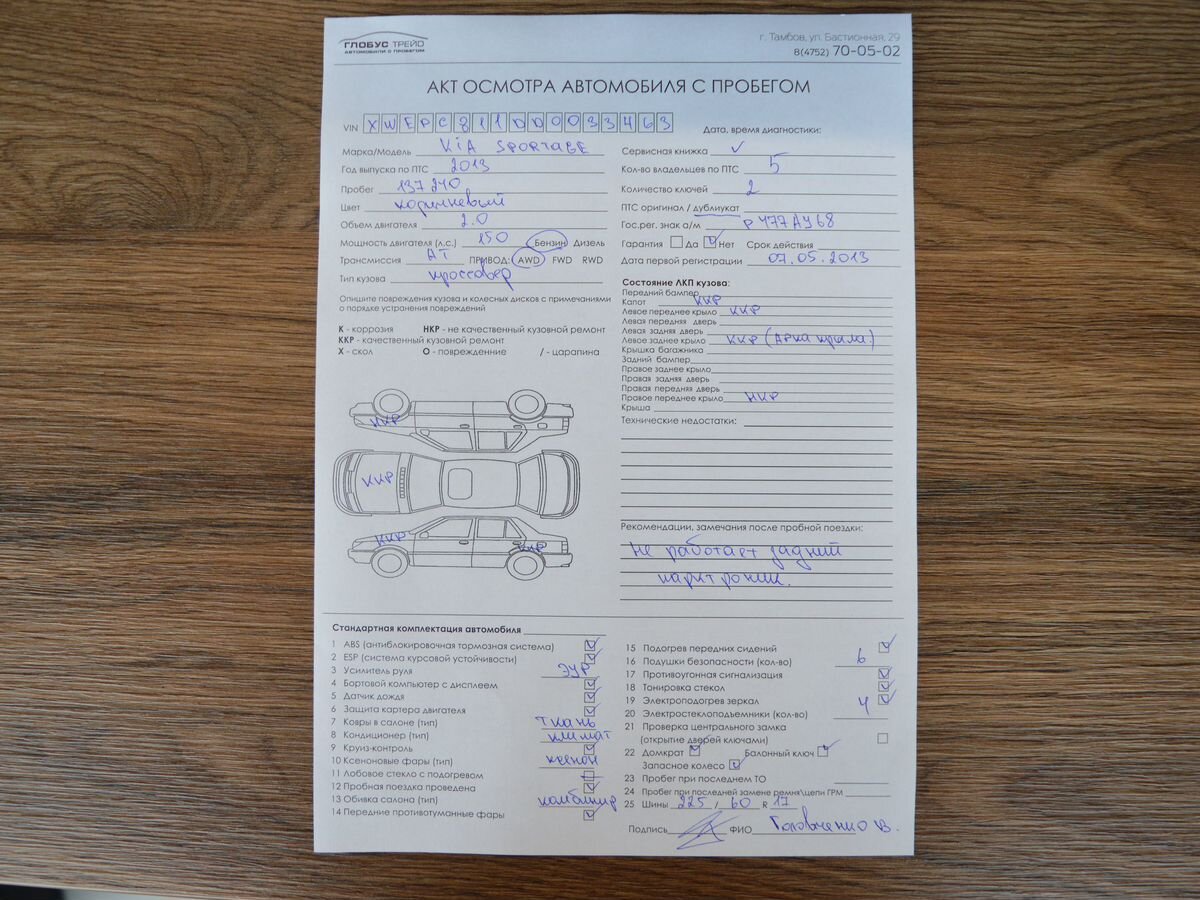 ГЛОБУС ТРЕЙД
АВТОМОБИЛИ С ПРОБЕГОМ
г. Тамбов, ул. Бастионная, 29
8(4752) 70-05-02
АКТ ОСМОТРА АВТОМОБИЛЯ С ПРОБЕГОМ
VIN XWEPC811DD0033463
Марка/Модель KIA SPORTAGE
Год выпуска по ПТС 2013
Пробег 137 240
Цвет коричневый
Объем двигателя 2.0
Мощность двигателя (л.с.) 150 Бензин Дизель
Трансмиссия АТ ПРИВОД: AWD FWD RWD
Тип кузова кроссовер
Опишите повреждения кузова и колесных дисков с примечаниями
о порядке устранения повреждений
К - коррозия НКР - не качественный кузовной ремонт
ККР - качественный кузовной ремонт
Х - скол О - поврежденние / - царапина
НКР
ККР
ККР
ККР
Дата, время диагностики:
Сервисная книжка ✓
Кол-во владельцев по ПТС 5
Количество ключей 2
ПТС оригинал / дубликат
Гос.рег. знак а/м Р477АУ68
Гарантия Да Нет Срок действия
Дата первой регистрации 07.05.2013
Состояние ЛКП кузова:
Передний бампер
Капот ККР
Левое переднее крыло ККР
Левая передняя дверь
Левая задняя дверь
Левое заднее крыло ККР (Арка крыла)
Крышка багажника
Задний бампер
Правое заднее крыло
Правая задняя дверь
Правая передняя дверь
Правое переднее крыло НКР
Крыша
Технические недостатки:
Рекомендации, замечания после пробной поездки:
Не работает задний
парктроник.
Стандартная комплектация автомобиля
1 ABS (антиблокировочная тормозная система)
2 ESP (система курсовой устойчивости)
3 Усилитель руля ЭУР
4 Бортовой компьютер с дисплеем
5 Датчик дождя
6 Защита картера двигателя
7 Ковры в салоне (тип) ткань
8 Кондиционер (тип) климат
9 Круиз-контроль
10 Ксеноновые фары (тип) ксенон
11 Лобовое стекло с подогревом
12 Пробная поездка проведена
13 Обивка салона (тип) комбинир
14 Передние противотуманные фары
15 Подогрев передних сидений
16 Подушки безопасности (кол-во) 6
17 Противоугонная сигнализация
18 Тонировка стекол
19 Электроподогрев зеркал
20 Электростеклоподъемники (кол-во) 4
21 Проверка центрального замка
(открытие дверей ключами)
22 Домкрат Балонный ключ
Запасное колесо
23 Пробег при последнем ТО
24 Пробег при последней замене ремня\цепи ГРМ
25 Шины 225 / 60 R 17
Подпись ФИО Головченко В.